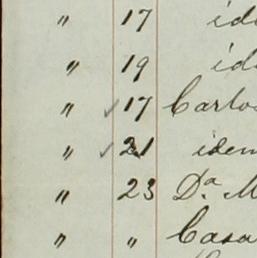 " 17 id
" 19 id
" ✓ 17 Carlos
" ✓ 21 idem
" 23 D.ª M
" " Casa